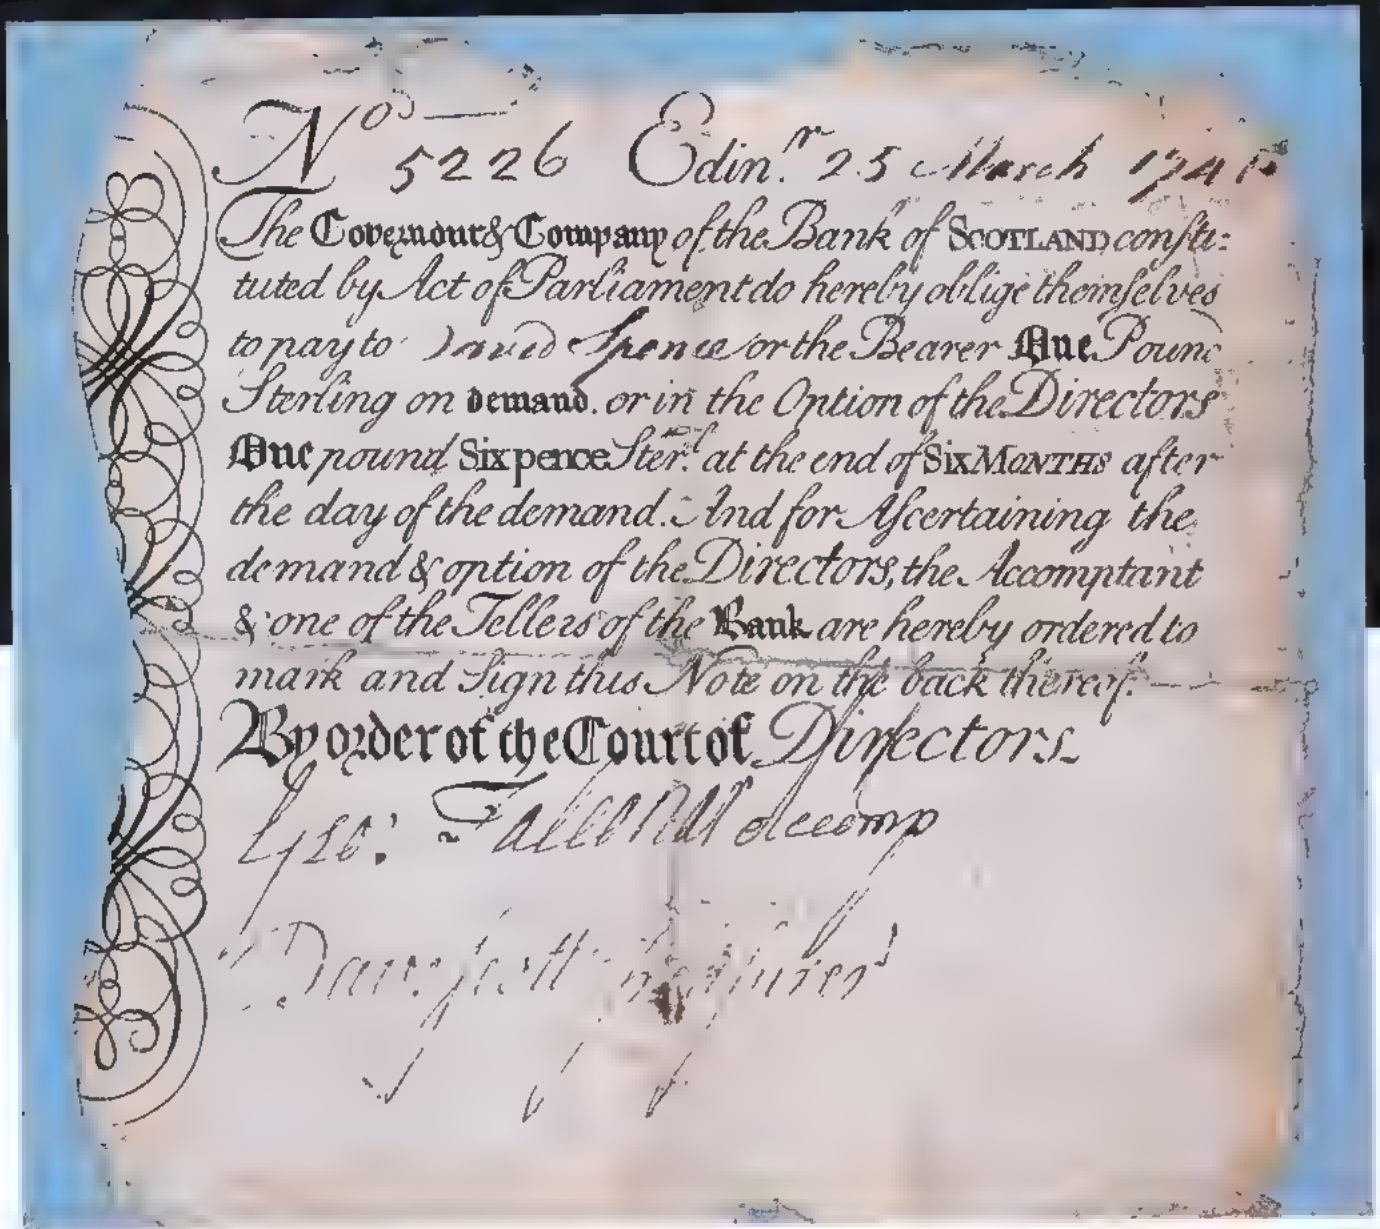 No 5226 Edinr. 25 March
The Governour & Company of the Bank of SCOTLAND consti-
tuted by Act of Parliament do hereby oblige themselves
to pay to David Spence or the Bearer One Pound
Sterling on demand. or in the Option of the Directors
One pound Sixpence Ster: at the end of Six MONTHS after
the day of the demand. And for Ascertaining the
demand & option of the Directors, the Accomptant
& one of the Tellers of the Bank are hereby ordered to
mark and Sign this Note on the back thereof.
By order of the Court of Directors.
Geo: Accomp